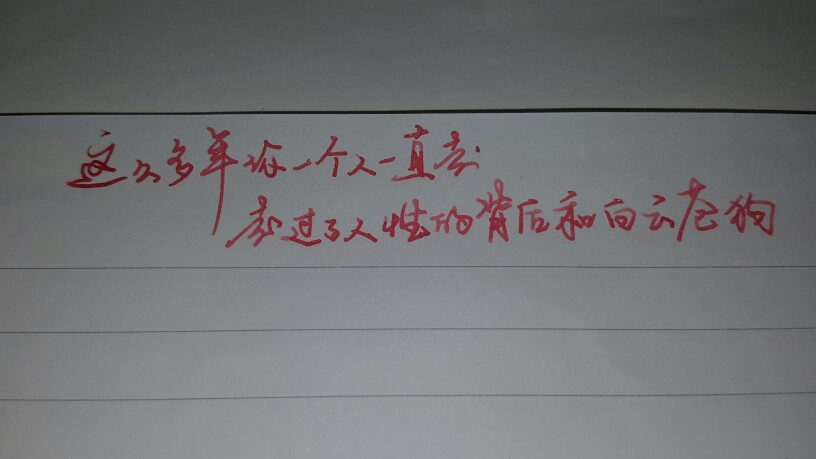 这么多年你一个人一直走
走过了人性的背后和白云苍狗